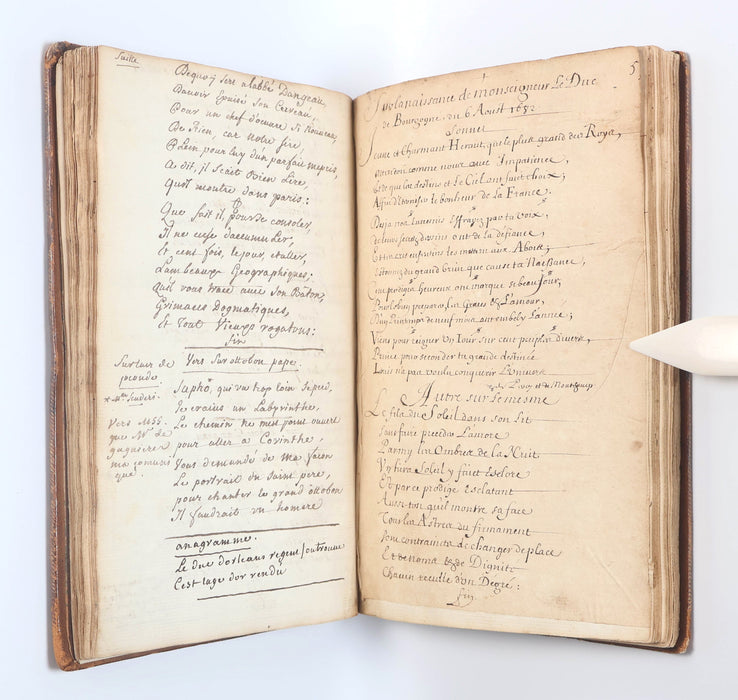 Suitte
Dequoy sert alabbé Dangeau,
Davoir Epuisé son Cerveau,
Pour un chef d'œuvre si nouveau,
De Rien, car notre sire,
Plein pour luy d'un parfait mepris,
a dit, il scait Bien Lire,
quil montre dans paris:
Que fait il, pour se consoler,
Il ne cesse daccumuler,
Et cent fois, le jour, etaller,
Lambeaux Geographiques;
quil vous trace avec son Bâton,
Grimaces Dogmatiques,
et Tout Vieux rogatons:
fin
Vers sur ottobon pape.
Sur lair de
joconde
Sapho, qui va trop loin se perd.
Je crains un Labyrinthe,
Le chemin ne mest point ouvert
pour aller a Corinthe,
Vous demandé de ma façon
Le portrait du saint pere,
pour chanter le grand ottobon
Il faudrait un homere
anagramme.
Le duc dorleans regent / on trouve
Cest lage dor rendu
5
Sur la naissance de monseigneur Le Duc
de Bourgogne, du 6 Aoust 1682
Sonnet
Jeune et Charmant Heraut, que le plus grand des Roys,
attendoit comme nous avec Impatience,
Et de qui la destine et Le Ciel ont fait choix,
Affin d'Eternifer le bonheur de La France.
Desja nos Ennemis Effrayez par ta voix,
de leurs secrez desseins ont de la deffiance,
Estonnez du grand bruit que cause ta Naissance,
Que prodige heureux on marque ce beau Jour,
Viens pour reigner un Jour sur cent peuples divers,
Prince pour seconder ta grande destinée
Louis n'a pas voulu conquerir L'univers
Autre sur le mesme
Le fils du Soleil dans son Lit
sans faire precedir L'aurore
Parmy les Ombres de la Nuit
Vn hier Soleil y fait Esclore
Et par ce prodige Esclatant
Aussi tost quil montre sa face
Tous les Astres du firmament
sont contraints de changer de place
Et de nom et de Dignité
Chacun recule d'un Degré:
fin